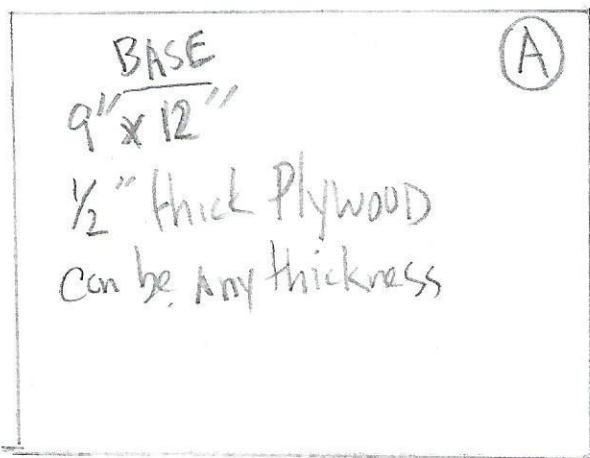 BASE
A
9" x 12"
1/2" thick Plywood
can be Any thickness